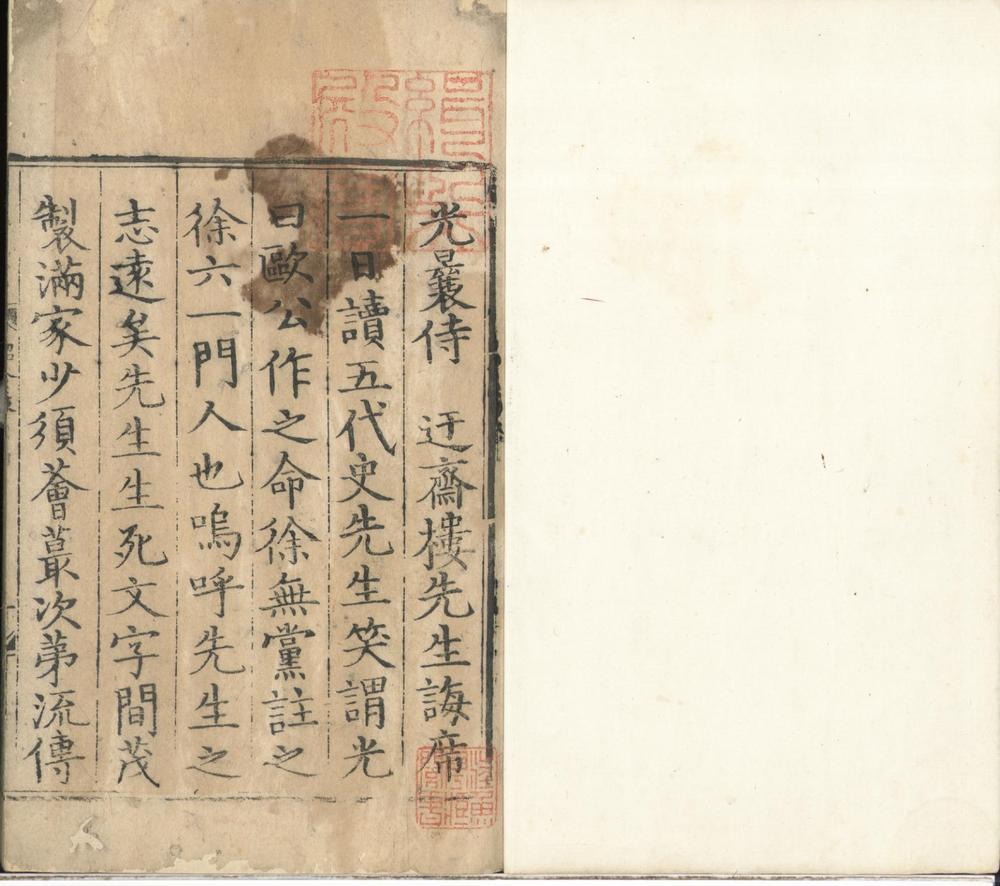 光曩侍　迂齋樓先生誨席
一日讀五代史先生笑謂光
曰歐公作之命徐無黨註之
徐六一門人也嗚呼先生之
志遠矣先生生死文字間茂
製滿家少須薈蕞次苐流傳